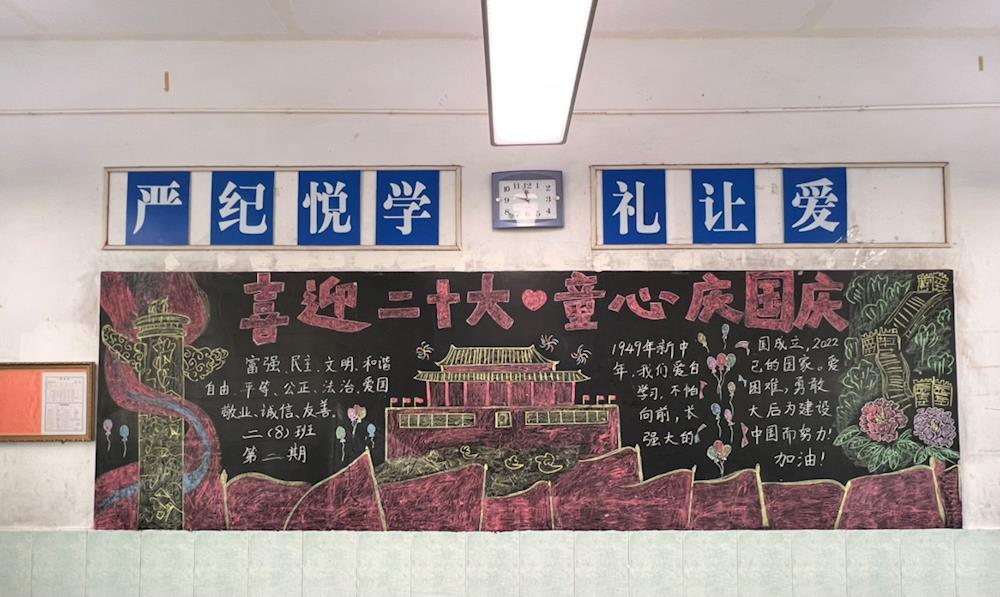 严纪悦学
礼让爱
喜迎二十大 童心庆国庆
富强、民主、文明、和谐
自由、平等、公正、法治、爱国
敬业、诚信、友善。
二(8)班
第二期
1949年新中国成立,2022
年,我们爱自己的国家。爱
学习,不怕困难,勇敢
向前,长大后为建设
强大的中国而努力!
加油!